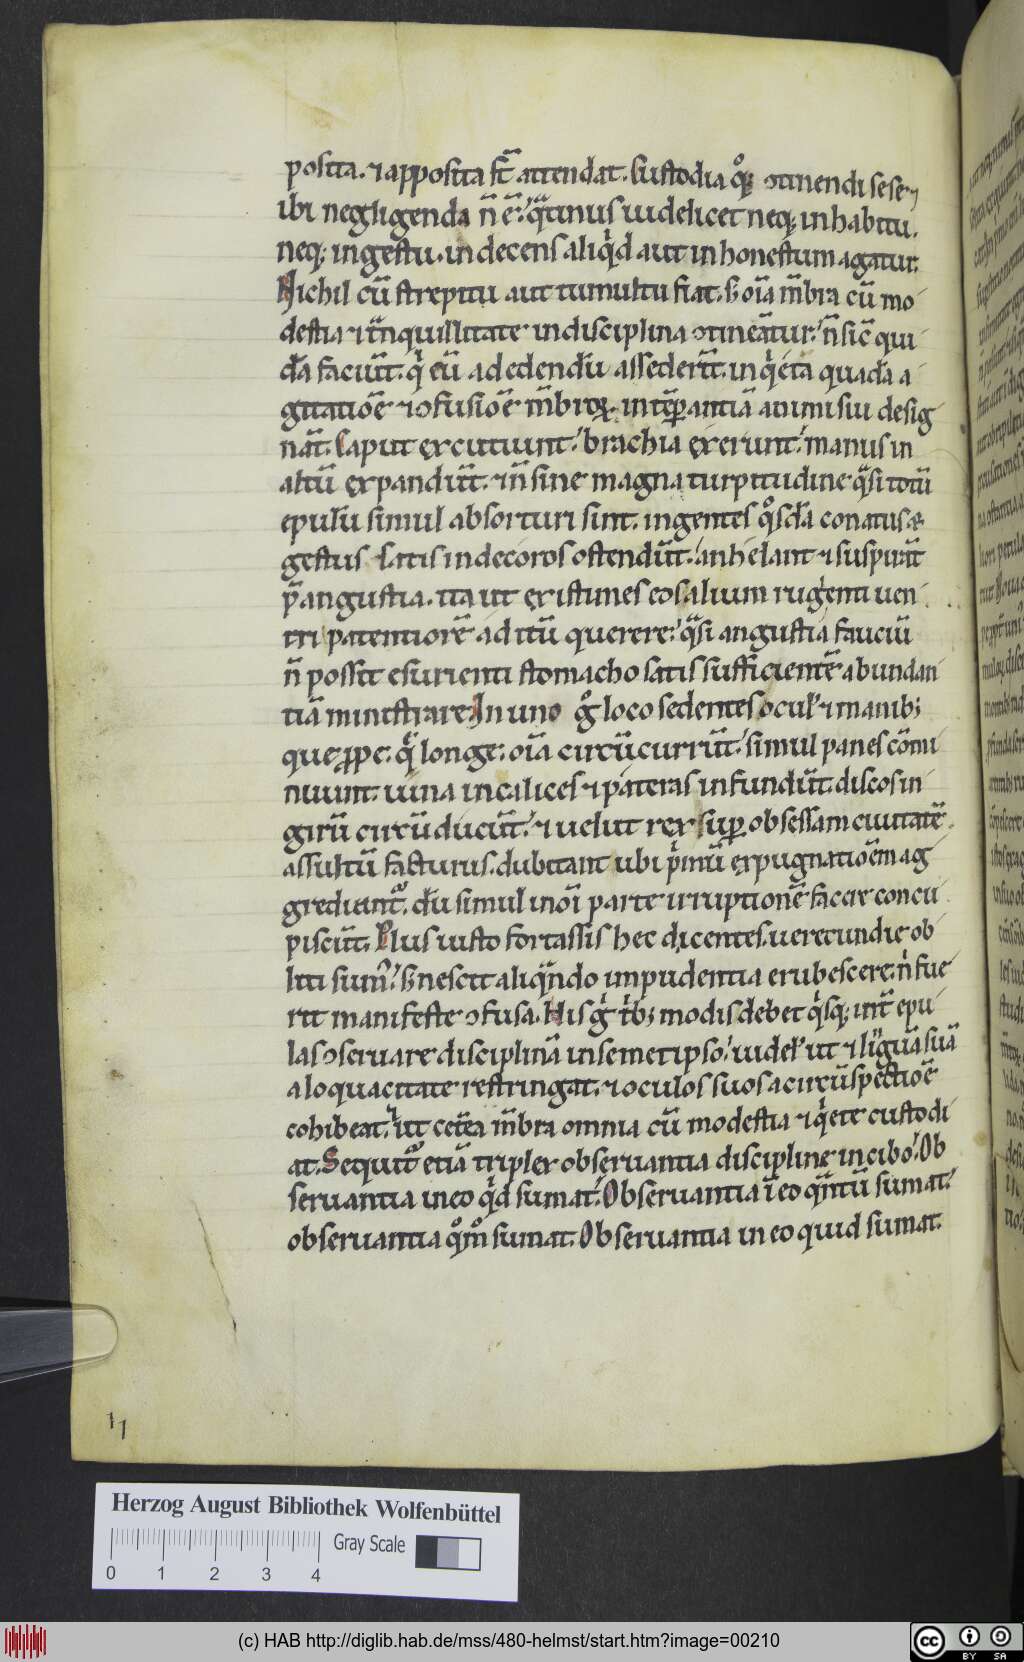 posita. ⁊ apposita st̄ attendat. Custodia qͦq; ↄtinendi sese
ibi negligenda n̄ ē. q̈tinus uidelicet neq; in habitu.
neq; in gestu. indecens aliq̇d aut inhonestum agatur.
Nichil cū strepitu aut tumultu fiat. s; oīa m̄bra cū mo
destia ⁊ t̄nquillitate in disciplina ↄtineātur. n̄ sic̄ qui
dā faciūt. q̇ cū ad edendū assederīt. inq̇eta quadā a
gitatiōe ⁊ ↄfusiōe m̄broꝝ. intēꝑantiā animi sui desig
nāt. Caput excutiunt. brachia exerunt. manus in
altū expandūt. ⁊ n̄ sine magna turpitudine q̈si totū
epulū simul absorturi sint. ingentes qͦsdā conatus ac
gestus satis indecoros ostendūt. anhelant ⁊ suspirāt
p̄ angustia. ita ut existimes eos alium rugienti uen
tri patentiorē aditū querere. q̈si angustia fauciū
n̄ possit esurienti stomacho satis sufficientē abundan
tiā ministrare. In uno gͦ loco sedentes ocul' ⁊ manib;
que ꝓpe. q̄ longe. oīa circūcurrūt. simul panes cōmi
nuunt. uina in calices ⁊ pateras infundūt. discos in
girū circūducūt. ⁊ uelut rex suꝑ obsessam ciuitatē
assultū facturus. dubitant ubi p̄mū expugnatiōem ag
grediant̄. dū simul in oī parte irruptionē facere concu
piscūt. Plus iusto fortassis hec dicentes. uerecundie ob
liti sum̄. s; nescit aliq̄ndo impudentia erubescere. n̄ fue
rit manifeste ↄfusa. His gͥ t̄b; modis debet q̇sq; int̄ epu
las ↄseruare disciplinā in semetipso. uidel' ut ⁊ liguā suā
a loquacitate restringat. ⁊ oculos suos a circūspectiōe
cohibeat. ⁊ ut cet̄ea m̄bra omnia cū modestia ⁊ q̇ete custodi
at. Sequit̄ etiā triplex obseruantia discipline in cibo. Ob
seruantia in eo q̇d sumat. Obseruantia ī eo q̄ntū sumat.
obseruantia qͦmͦ sumat. Obseruantia in eo quid sumat.
Herzog August Bibliothek Wolfenbüttel
Gray Scale
0 1 2 3 4
(c) HAB http://diglib.hab.de/mss/480-helmst/start.htm?image=00210
cc BY SA